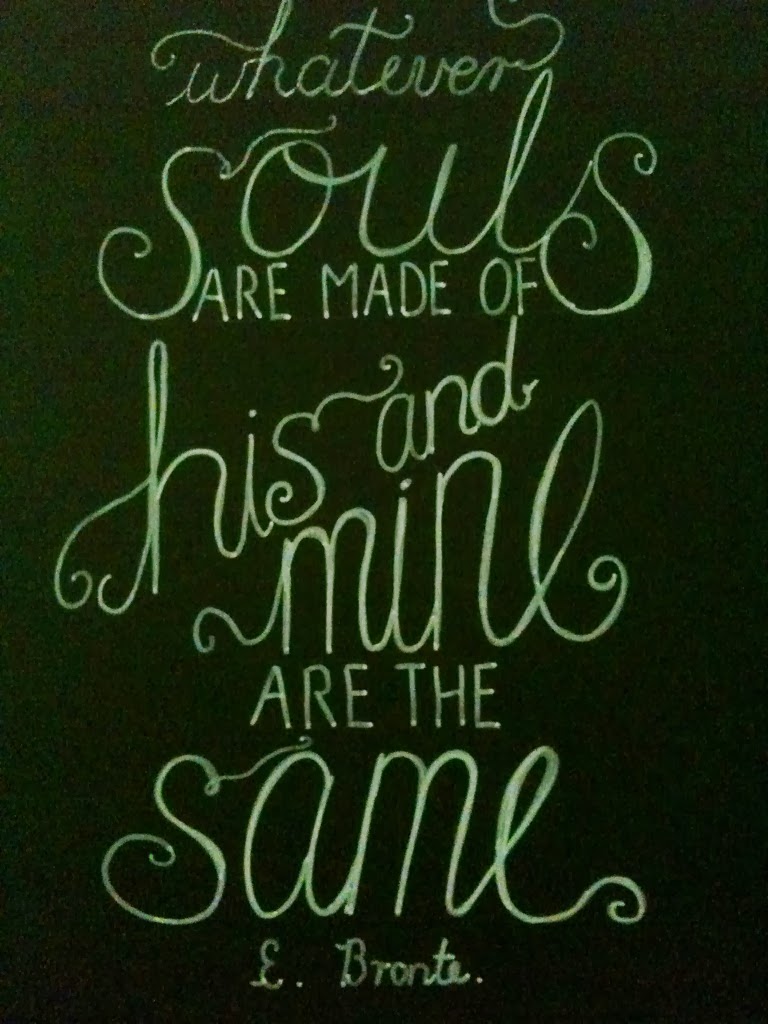 whatever
souls
ARE MADE OF
his and
mine
ARE THE
same
E. Bronte.